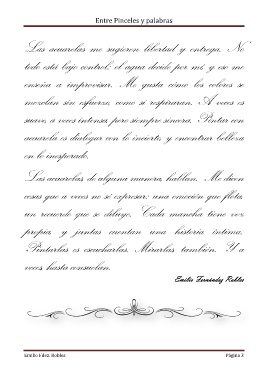 Entre Pinceles y palabras
Las acuarelas me sugieren libertad y entrega. No
todo está bajo control: el agua decide por mí, y eso me
enseña a improvisar. Me gusta cómo los colores se
mezclan sin esfuerzo, como si respiraran. A veces es
suave, a veces intensa, pero siempre sincera. Pintar con
acuarela es dialogar con lo incierto, y encontrar belleza
en lo inesperado.
Las acuarelas de alguna manera, hablan. Me dicen
cosas que a veces no sé expresar: una emoción que flota,
un recuerdo que se diluye. Cada mancha tiene voz
propia, y juntas cuentan una historia íntima.
Pintarlas es escucharlas. Mirarlas también. Y a
veces hasta consuelan.
Emilio Fernández Robles
Emilio Eden Robles
Página 3